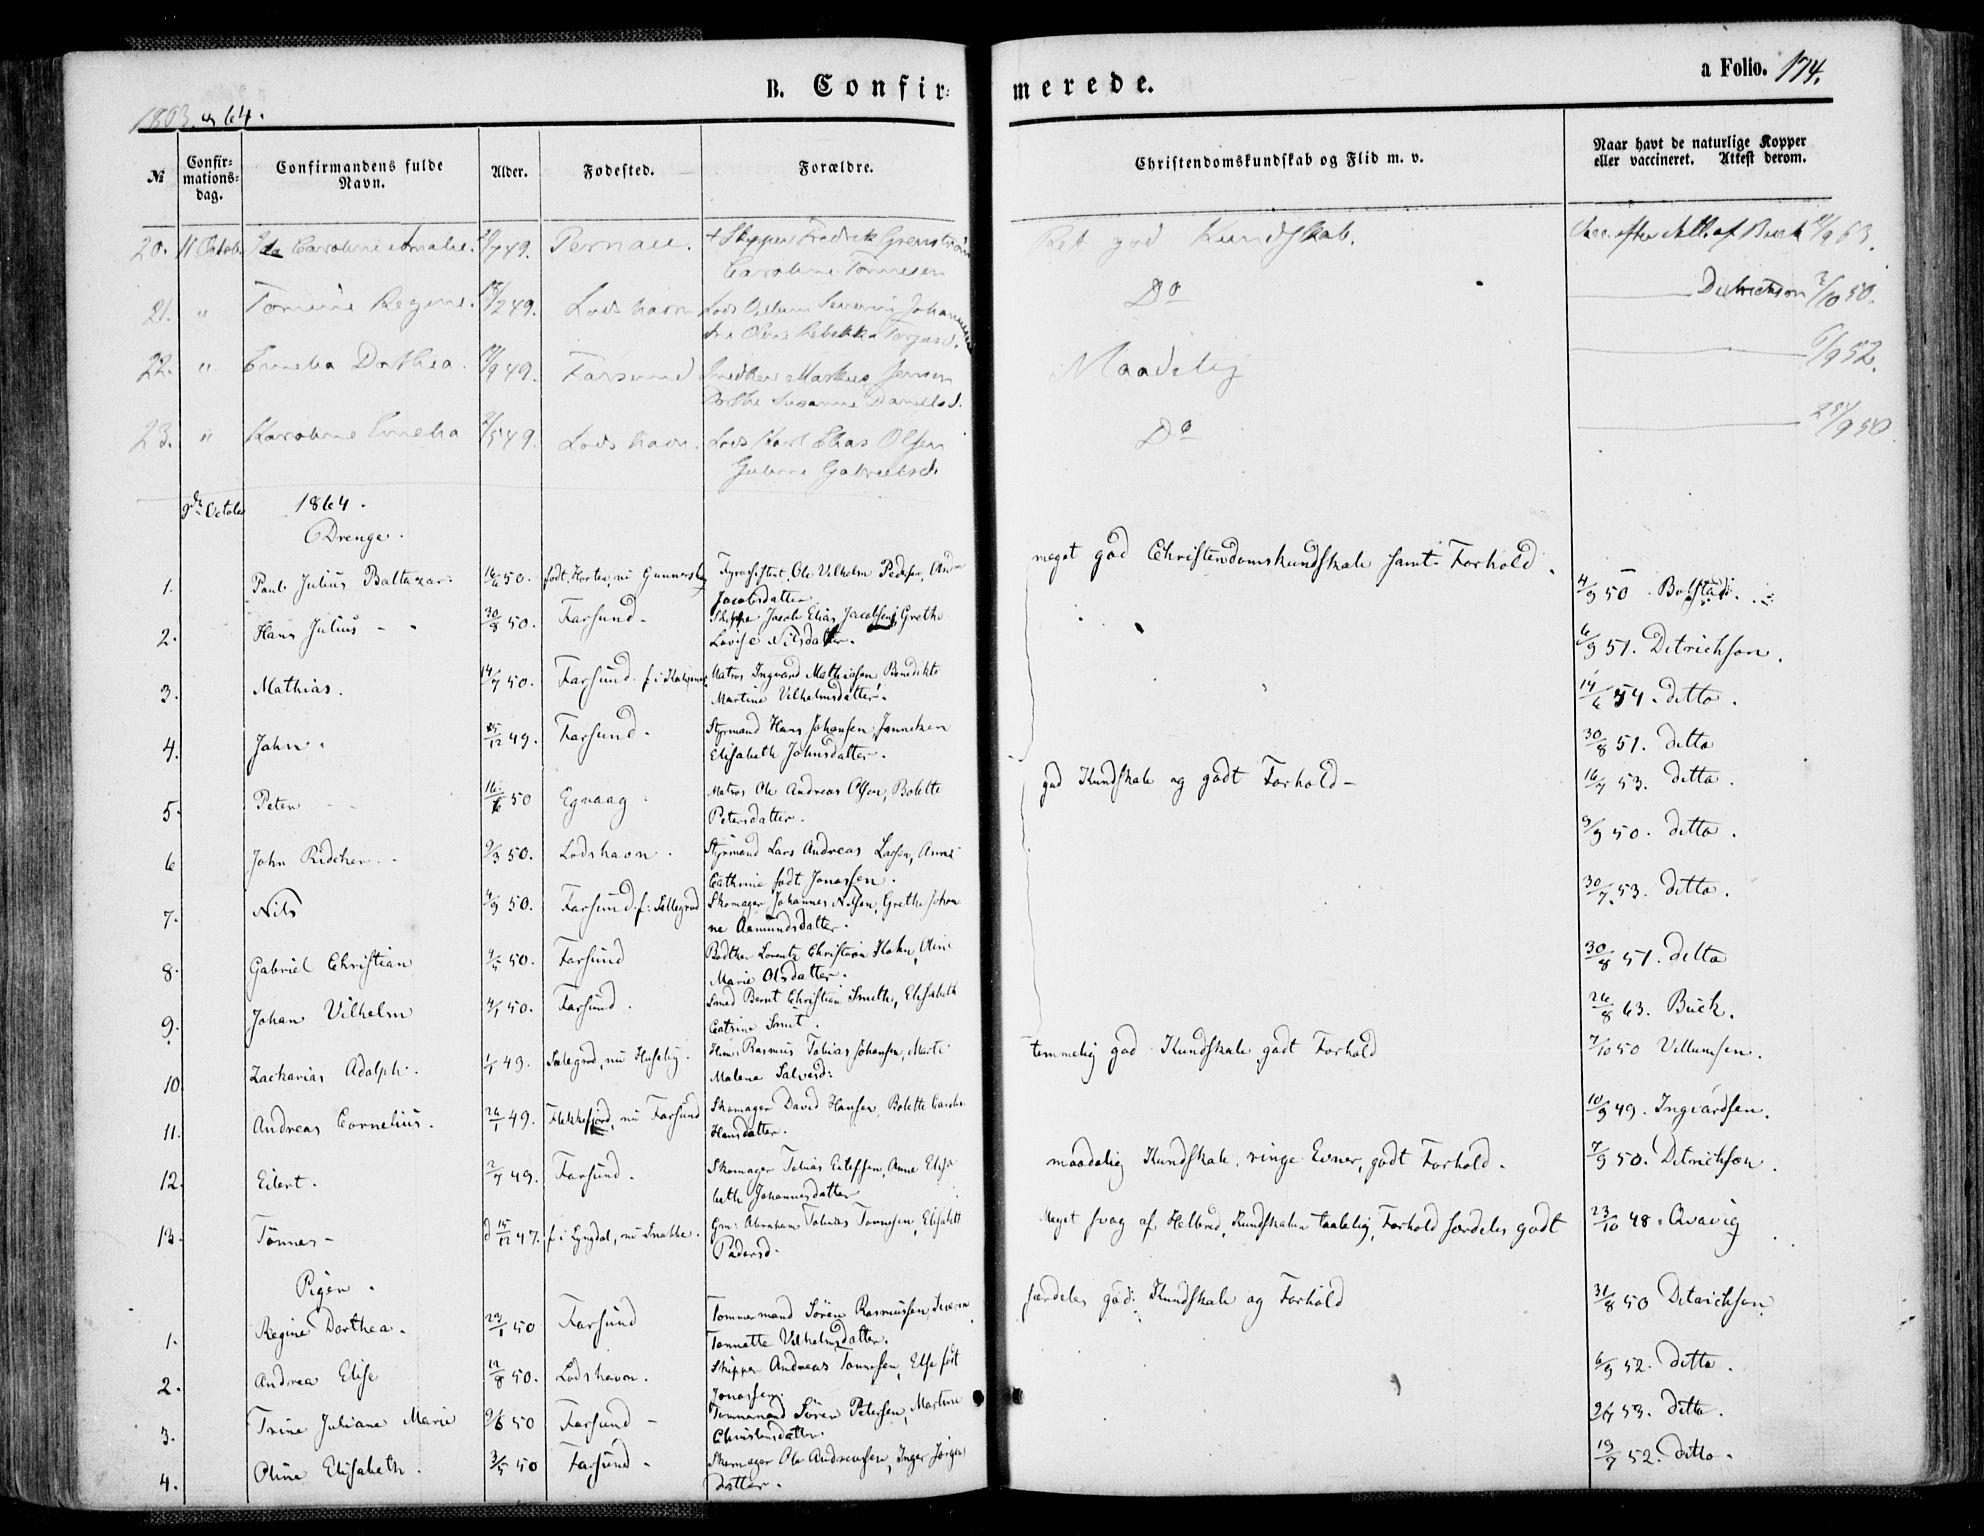 B. Confir-
merede.
a Folio. 174.
1863 og 64.
№
Confir-
mations-
dag.
Confirmandens fulde
Navn.
Alder.
Fødested.
Forældre.
Christendomskundskab og Flid m. v.
Naar havt de naturlige Kopper
eller vaccineret. Attest derom.
20. 11 October Caroline Amalie. 49. Pernau. + Skipper Fredrik Ret god Kundskab. 9 63.
Caroline Tønnesen
21. " Tomine Regine. 2 49. Lodshavn Lods Severin Do Detrichson 3/10 50.
22. " Emelia Dorthea. 9 49. Farsund Snedker Markus Jensen Maadelig 6/9 52.
Dorthe Susanne Danielsd.
23. " Karoline Emelia 2/5 49. Lodshavn. Lods Karl Elias Olsen Do 9 50.
Gabrielsd.
9de October 1864.
Drenge.
1. Paul Julius Baltazar. 50. født i Horten, nu Ole Vilhelm Pedersen, meget god Christendomskundskab samt Forhold. 4/9 50. Bolstad.
Jacobsdatter.
2. Hans Julius - 30/8 50. Farsund - Skipper Jacob Elias Jacobsen, Grethe 6/9 51. Detrichson.
Lovise Nilsdatter.
3. Mathias. 14/7 50. Farsund. Matros Ingvard Mathiasen, Benedikte 14/6 54. ditto.
Martine Vilhelmsdatter.
4. Jahn. 25/12 49. Farsund. Styrmand Hans Johansen, Jonneken 30/8 51. ditto
Elisabeth Johnsdatter.
5. Peter 16/6 50 Egvaag. Matros Ole Andreas Olsen, Bolette god Kundskab og godt Forhold - 16/7 53. ditto.
Petersdatter.
6 John Ridcher. 9/3 50. Lodshavn. Styrmand Lars Andreas Larsen, Anne 9/9 50. ditto.
Cathrine født Jonassen.
7. Nils 4/9 50. Farsund Skomager Johannes Nilsen, Grethe Johan 30/7 53. ditto.
ne Aamundsdatter.
8. Gabriel Christian 4/5 50. Farsund Bødker Lorentz Christian Hahn, Oline 30/8 51. ditto
Marie Olsdatter.
9. Johan Vilhelm 4/1 50. Farsund. Smed Bernt Christian Smith, Elisabeth 26/8 63. Buck.
Catrine Smit.
10. Zacharias Adolph. 1/1 49. nu Huseby. Rasmus Tobias Johansen, Marte temmelig god Kundskab, godt Forhold 7/10 50 Villumsen.
Malena Salvesd:
11. Andreas Cornelius. 26/1 49. Flekkefjord, nu Farsund Skomager David Hansen, Bolette 10/9 49. Ingvardsen.
Hansdatter.
12. Eilert. 2/7 49. Farsund. Skomager Tobias Eilefsen, Anne Elisa maadelig Kundskab, ringe Evner, godt Forhold. 7/9 50. Detrichson.
beth Johannesdatter
13. Tønnes - d 15/12 47. f i Lyngdal, nu Gm: Abraham Tobias Tønnesen, Elisabeth Meget svag af Helbred, Kundskaben taalelig, Forhold særdeles godt 23/10 48. Qvavig
Pedersd.
Piger.
1. Regine Dorthea. 29/1 50 Farsund Tømmermand Søren Rasmussen, særdeles god Kundskab og Forhold 31/8 50 Detrichson
Tonnette Vilhelmsdatter.
2. Andrea Elise 12/8 50. Lodshavn. Skipper Andreas Tønnesen, Else født 6/9 52. ditto.
Jonassen.
3. Trine Juliane Marie 9/6 50 Farsund - Tømmermand Søren Petersen, Martine 53. ditto.
Christensdatter.
4. Oline Elisabeth. 3/5 50 Farsund - Skomager Ole Andreassen, Inger Jørgens 19/7 52. ditto.
datter.